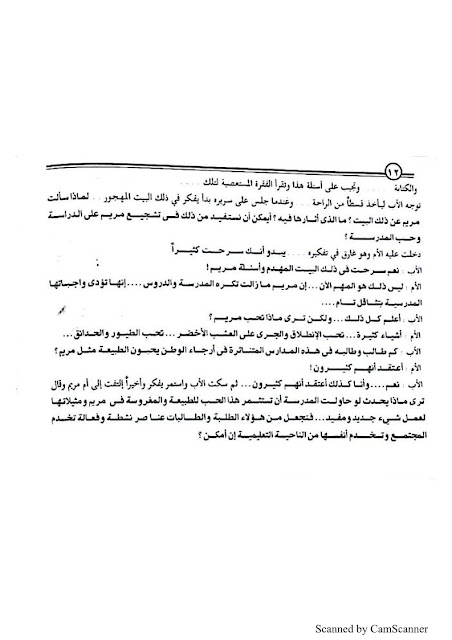 ١٢
والكتابة ..... وتجيب على أسئلة هذا وتقرأ الفقرة المستعصية لتلك ....
توجه الأب ليأخذ قسطاً من الراحة .... وعندما جلس على سريره بدأ يفكر في ذلك البيت المهجور .. لماذا سألت
مريم عن ذلك البيت ؟ ما الذى أثارها فيه ؟ أيمكن أن نستفيد من ذلك فى تشجيع مريم على الدراسة
وحب المدرسة ؟
دخلت عليه الأم وهو غارق في تفكيره .... يبدو أنك سرحت كثيراً
الأب : نعم سرحت فى ذلك البيت المهدم وأسئلة مريم !
الأم : ليس ذلك هو المهم الآن ...إن مريم ما زالت تكره المدرسة والدروس ....إنها تؤدى واجباتها
المدرسية بتثاقل تام....
الأب : أعلم كل ذلك...ولكن ترى ماذا تحب مريم ؟
الأم : أشياء كثيرة... تحب الإنطلاق والجرى على العشب الأخضر...تحب الطيور والحدائق...
الأب : كم طالب وطالبه فى هذه المدارس المتناثرة فى أرجاء الوطن يحبون الطبيعة مثل مريم ؟
الأم : أعتقد أنهم كثيرون !
الأب : نعم....وأنا كذلك أعتقد أنهم كثيرون... ثم سكت الأب واستمر يفكر وأخيراً إلتفت إلى أم مريم وقال
ترى ماذا يحدث لو حاولت المدرسة أن تستثمر هذا الحب للطبيعة والمغروسة فى مريم ومثيلاتها
لعمل شيء جديد ومفيد...فتجعل من هؤلاء الطلبة والطالبات عناصر نشطة وفعالة تخدم
المجتمع وتخدم أنفسها من الناحية التعليمية إن أمكن ؟
Scanned by CamScanner